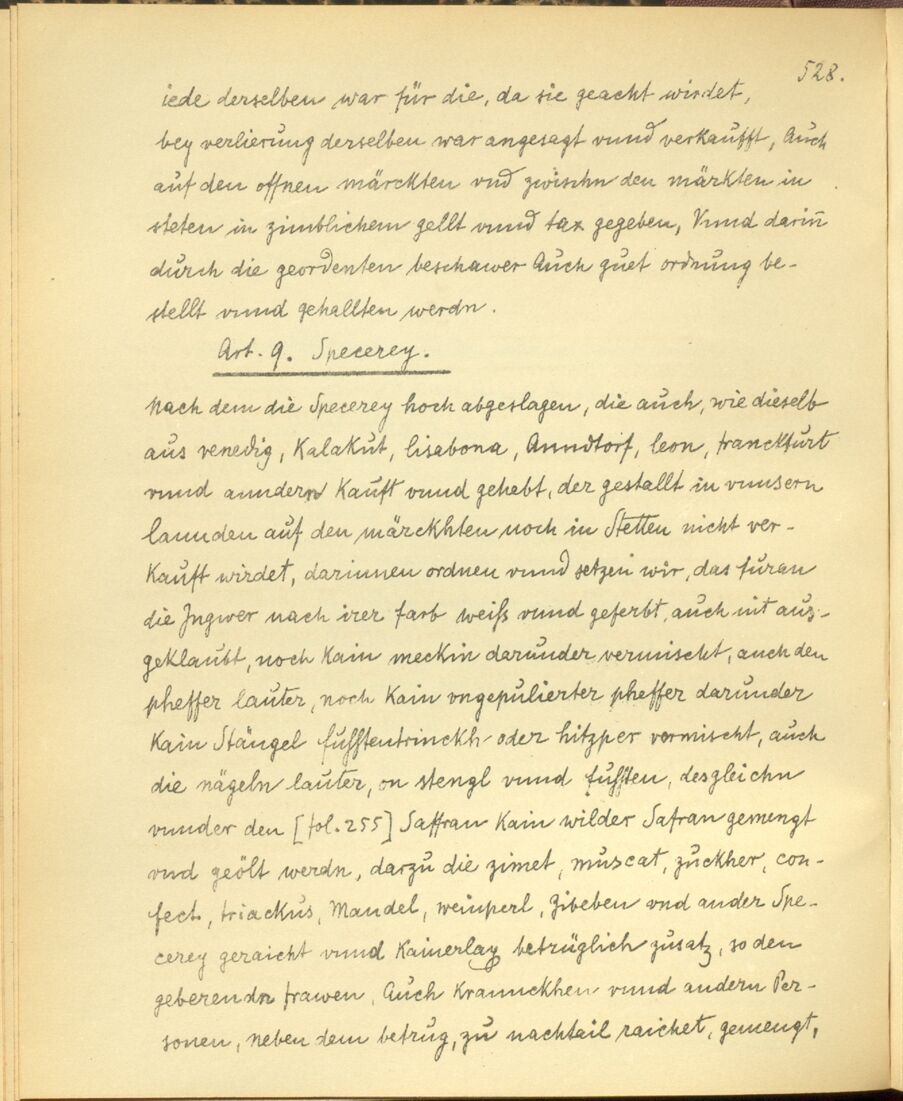 528.
iede derselben war für die, da sie geacht wirdet,
bey verlierung derselben war angesagt vnnd verkaufft, Auch
auf den offnen märckten vnd zwischn den märkten in
steten in zimblichem gellt vnnd tax gegeben, Vnnd darin̄
durch die geordenten beschawer Auch guet ordnung be-
stellt vnnd gehallten werdn.
Art. 9. Specerey.
Nach dem die Specerey hoch abgeslagen, die auch, wie dieselb
aus venedig, Kalakut, lisabona, Anndtorf, leon, franckfurt
vnnd anndern Kauft vnnd gehebt, der gestallt in vnnsern
lannden auf den märckhten noch in Stetten nicht ver-
Kauft wirdet, darinnen ordnen vnnd setzen wir, das furan
die Jngwer nach irer farb weiß vnnd geferbt, auch nit aus-
geklaubt, noch Kain meckin darunder vermischt, auch den
pheffer lauter, noch Kain vngepulierter pheffer darunder
Kain Stängel fusstentrinckh oder hitzper vermischt, auch
die nägeln lauter, on stengl vnnd fussten, desgleichn
vnnder den [fol. 255] Saffran Kain wilder Safran gemengt
vnd geölt werdn, darzu die zimet, muscat, zuckher, con-
fect, triackus, Mandel, weinperl, Zibeben vnd ander Spe-
cerey geraicht vnnd Kainerlay betrüglich zusatz, so den
geberendn frawen, Auch Krannckhen vnnd andern Per-
sonen, neben dem betrug, zu nachtail raichet, gemengt,